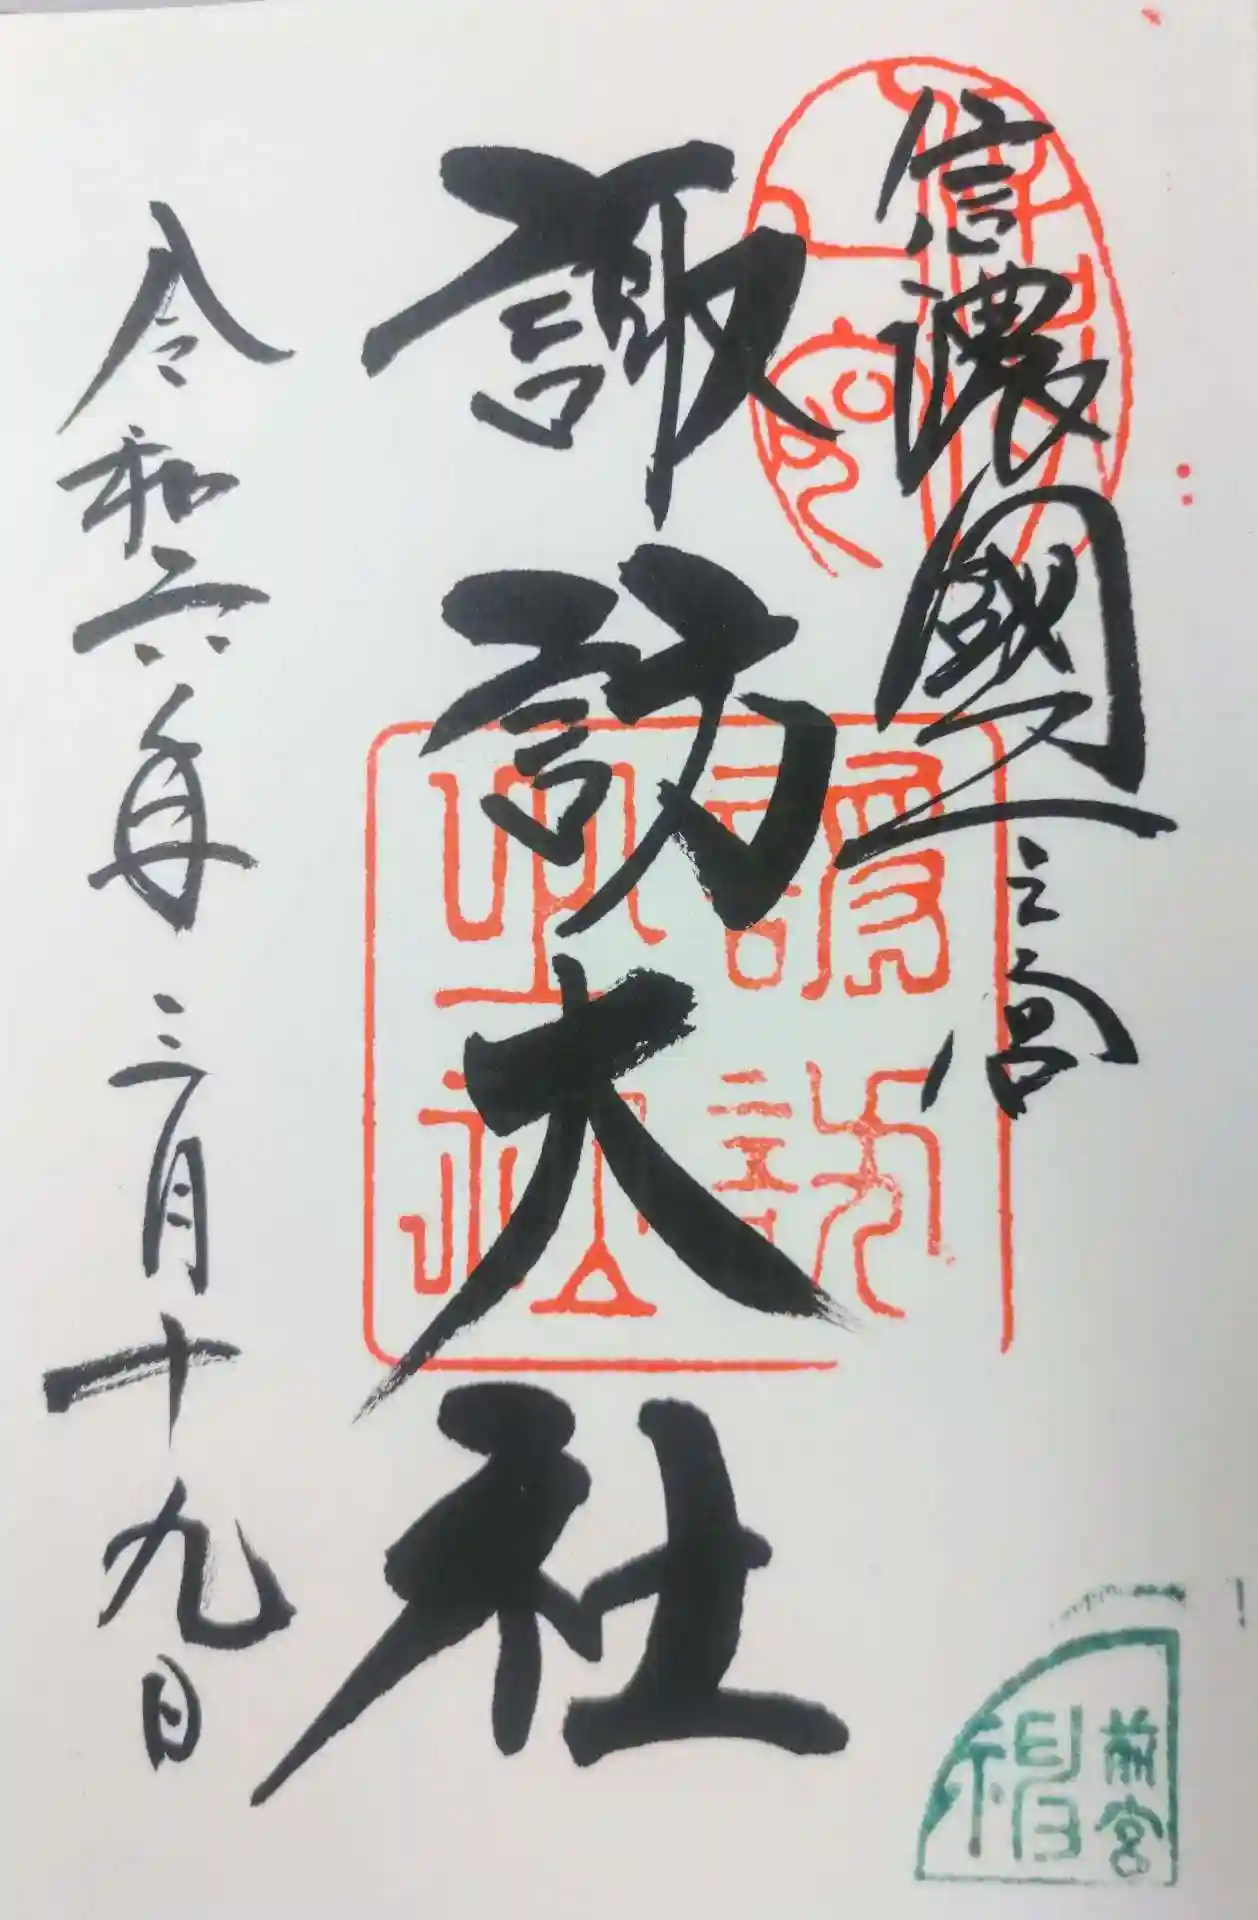 信濃國一之宮
諏訪大社
令和六年三月十九日
諏訪
大社
前宮